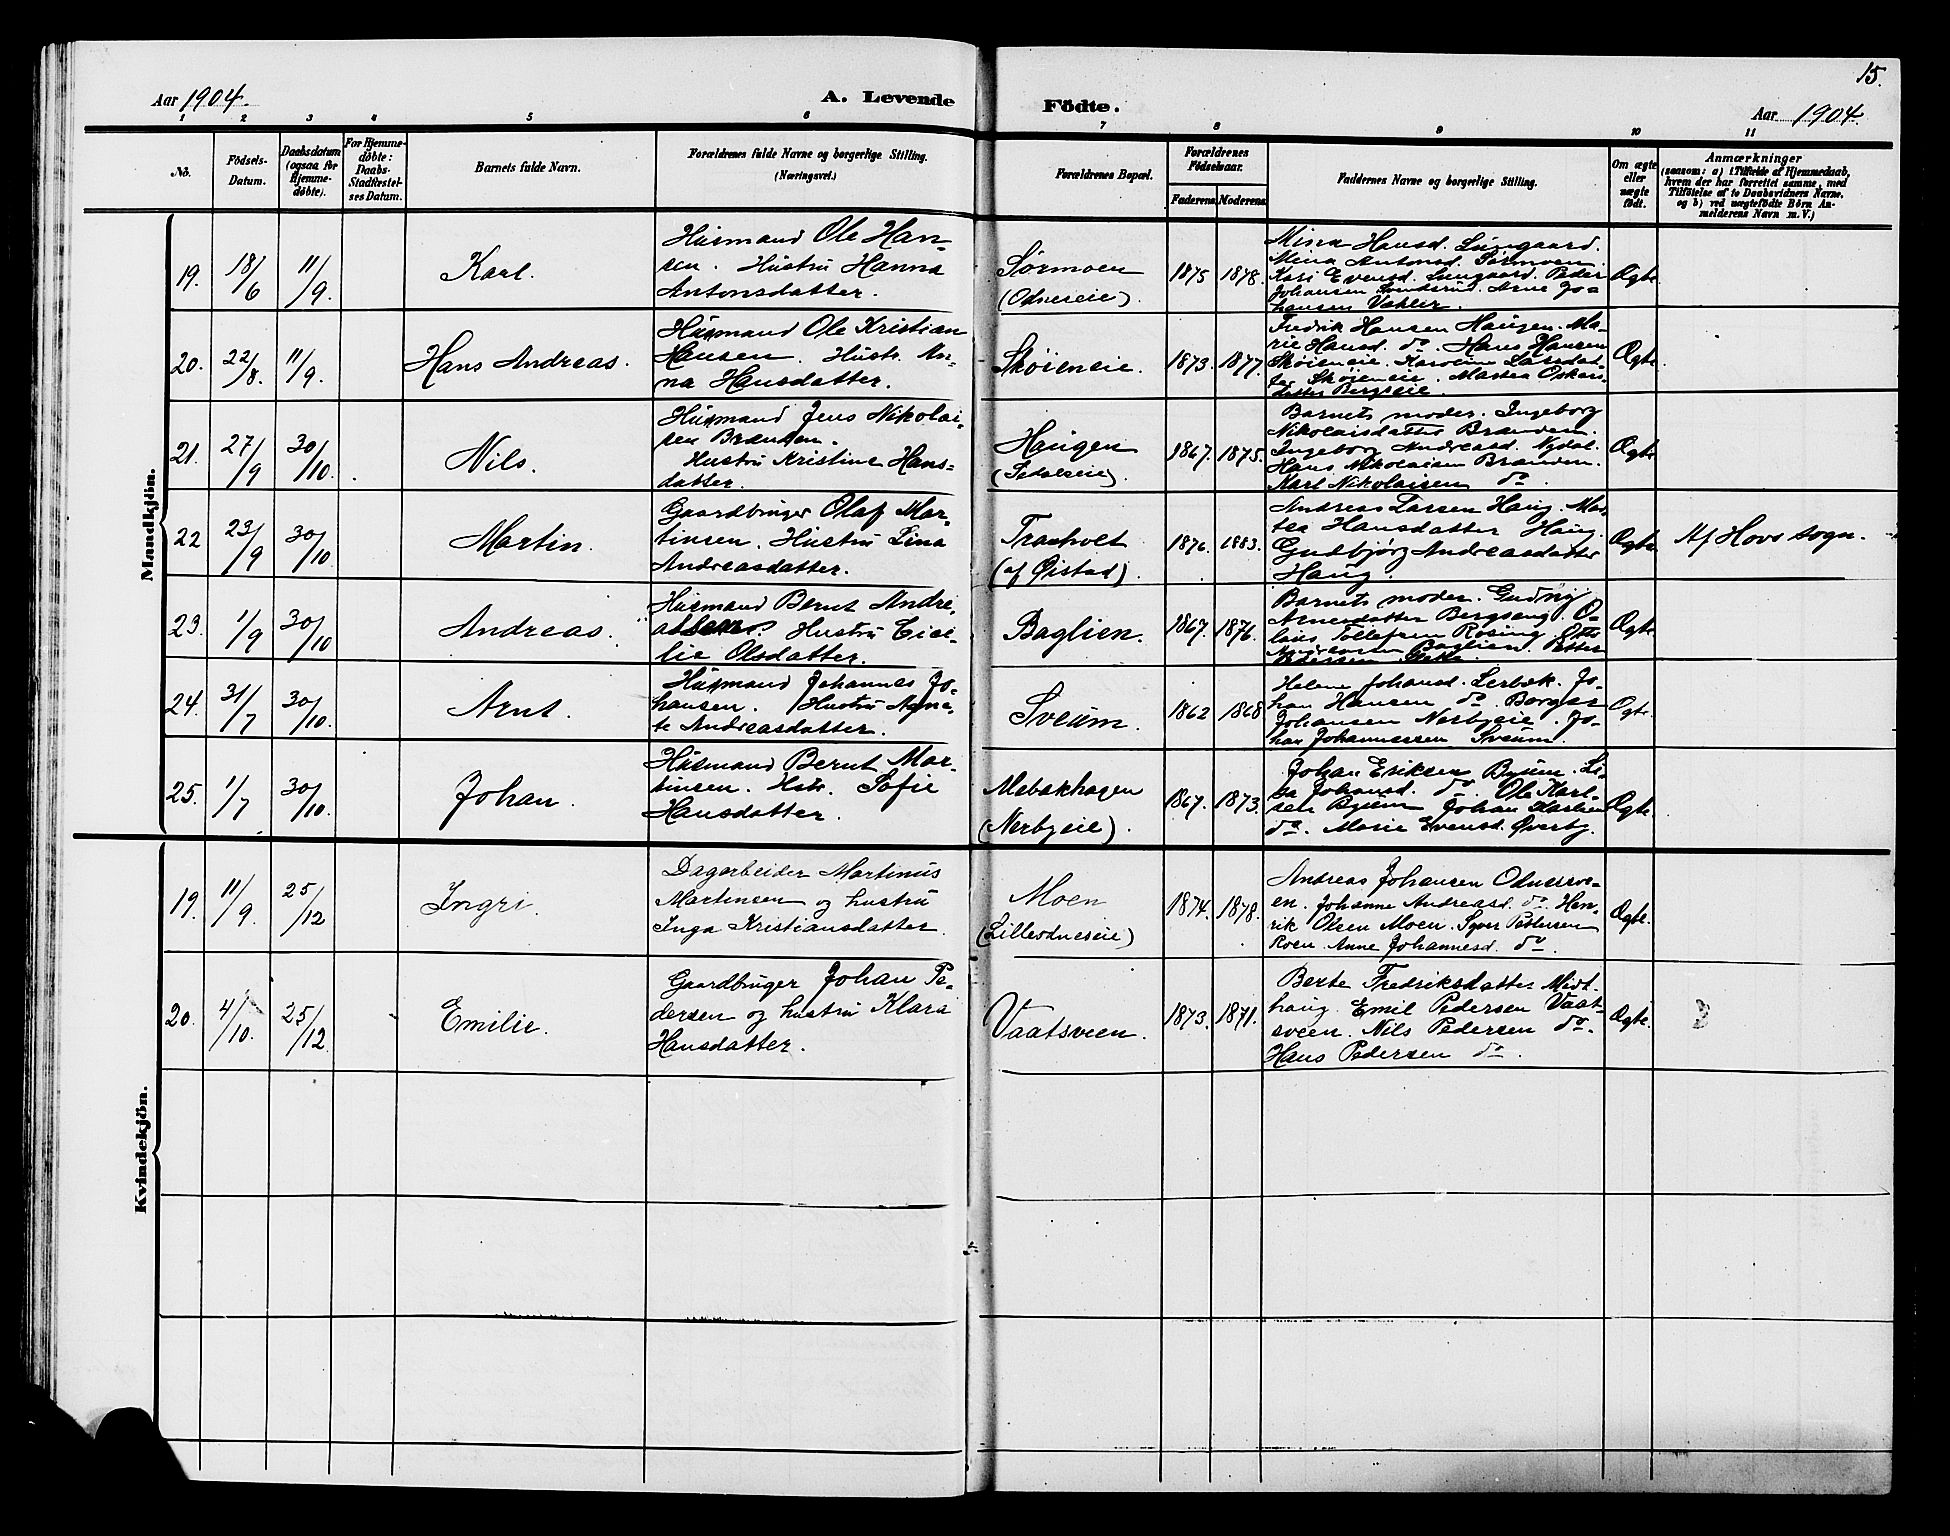 15.
Aar 1904. A. Levende Födte. Aar 1904.
1 2 3 4 5 6 7 8 9 10 11
No.
Födsels-
Datum.
Daabsdatum
(ogsaa for
Hjemme-
döbte).
For Hjemme-
döbte:
Daabs-
Stadfæstel-
ses Datum.
Barnets fulde Navn.
Forældrenes fulde Navne og borgerlige Stilling.
(Næringsvei.)
Forældrenes Bopæl.
Forældrenes
Födselsaar.
Faderens. Moderens.
Faddernes Navne og borgerlige Stilling.
Om ægte
eller
uægte
födt.
Anmærkninger
(saasom: a) i Tilfælde af Hjemmedaab,
hvem der har forrettet samme, med
Tilföielse af to Daabsvidners Navne,
og b) ved uægtefödte Börn An-
melderens Navn m. V.)
Mandkjön.
19. 18/6 11/9. Karl.
Husmand Ole Han-
sen. Hustru Hanna
Antonsdatter.
Sørmoen
(Odneseie).
1875 1878.
Mina Hansd. Lungaard.
Mina Antonsd. Sørmoen.
Kari Evensd. Lungaard. Peder
Johansen Arne Jo-
hansen
Ægte.
20. 22/8. 11/9. Hans Andreas.
Husmand Ole Kristian
Hansen. Hustr. An-
na Hansdatter.
Skøieneie.
1873. 1877.
Fredrik Hansen Haugen. Ma-
rie Hansd. do. Hans Hansen
Skøieneie. Karoline Larsdat-
ter Skøieneie. Martea Oskars-
datter Bergseie.
Ægte.
21. 27/9 30/10. Nils.
Husmand Jens Nikolai-
sen Brænden.
Hustru Kristine Hans-
datter.
Haugen
1867. 1875.
Barnets moder. Ingeborg
Nikolaisdatter Brænden.
Ingeborg Andreasd. Nydal.
Hans Nikolaisen Brænden.
Karl Nikolaisen do.
Ægte
22 23/9 30/10 Martin.
Gaardbruger Olaf Mar-
tinsen. Hustru Lina
Andreasdatter.
(af Øistad).
1876. 1883.
Andreas Larsen Haug. Mar-
tea Hansdatter Haug.
Gudbjørg Andreasdatter
Haug.
Ægte.
Af Hovs sogn.
23. 1/9 30/10 Andreas.
Husmand Bernt Andre-
assen. Hustru Cici-
lie Olsdatter.
Baglien.
1867. 1876.
Barnets moder. Gudvig
Arnesdatter Bergseng. O-
laus Tollefsen Røsing. Otto
Andreassen Baglien. Petter
Pedersen
Ægte.
24. 31/7 30/10. Arnt.
Husmand Johannes Jo-
hansen. Hustru Agne-
te Andreasdatter.
Sveum.
1862 1868
Helene Johansd. Lerbæk. Jo-
han Hansen do. Borgar
Johansen Nerbyeie. Jo-
han Johannessen Sveum.
Ægte.
25. 1/7 30/10. Johan.
Husmand Bernt Mar-
tinsen. Hstr. Sofie
Hansdatter.
Mæbakhagen
(Nerbyeie).
1867. 1873.
Johan Eriksen Byum. Li-
sa Johansd. do. Ole Karl-
sen Byum Johan Karlsen
do. Marie Evensd. Øverby.
Ægte.
Kvindekjön.
19. 11/9. 25/12 Ingri.
Dagarbeider Martinus
Martinsen og hustru
Inga Kristiansdatter.
Moen
(Lilleodneseie)
1874. 1878.
Andreas Johansen Odnessve-
en. Johanne Andreasd. do. Hen-
rik Olsen Moen. Syver Pettersen
Roen. Anne Johannesd. do.
Ægte.
20. 4/10. 25/12. Emilie.
Gaardbruger Johan Pe-
dersen og hustru Klara
Hansdatter.
Vaatsveen.
1873. 1871.
Berte Fredriksdatter Midt-
haug. Emil Pedersen Vaat-
sveen. Nils Pedersen do.
Hans Pedersen do.
Ægte.